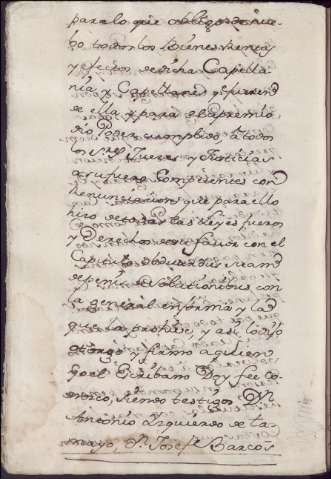 para lo que obligo dicho
to todos los Bienes Rentas
y efectos de dicha Capella
nia y Capellanes que fueren
de ella y para el apremio
dio Poder cumplido a todos
los S.res Jueces y Justicias
a su fuero Competentes con
Renunciacion que para ello
hizo de todas las Leyes fueros
y Derechos de su favor con el
Capitulo
de solutionibus con
la general en forma y la
que la prohive; y asi lo dijo
otorgo y firmo a quien
yo el Escribano Doy fee co
nozco, siendo testigos D.n
Antonio Izquierdo de ta
mayo, D.n Josef Barcos